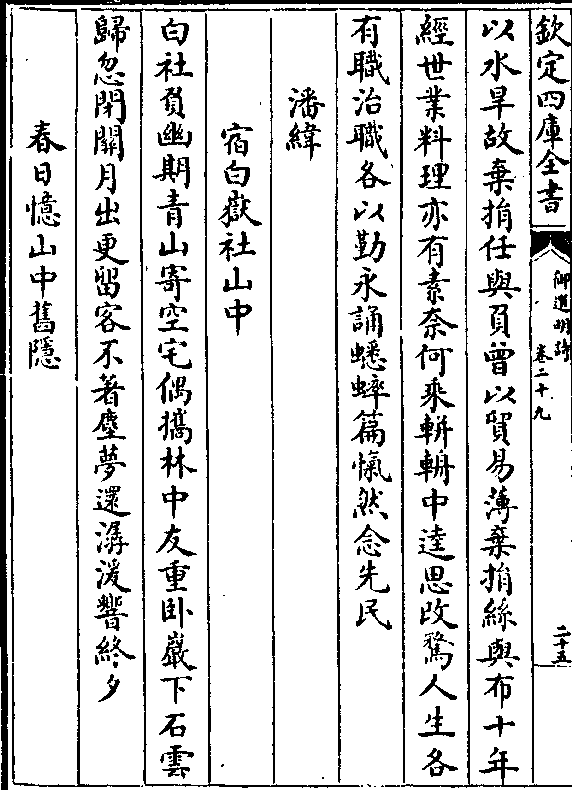 欽定四庫全書
御選明詩
卷二十九
二十五
以水旱故棄捐任與負曾以貿易薄棄捐絲與布十年
經世業料理亦有素奈何乘軿輧中逵思改騖人生各
有職治職各以勤永誦蟋蟀篇愾然念先民
潘緯
宿白嶽社山中
白社負幽期青山寄空宅偶攜林中友重卧巖下石雲
歸忽閉關月出更留客不著塵夢還潺湲響終夕
春日憶山中舊隱